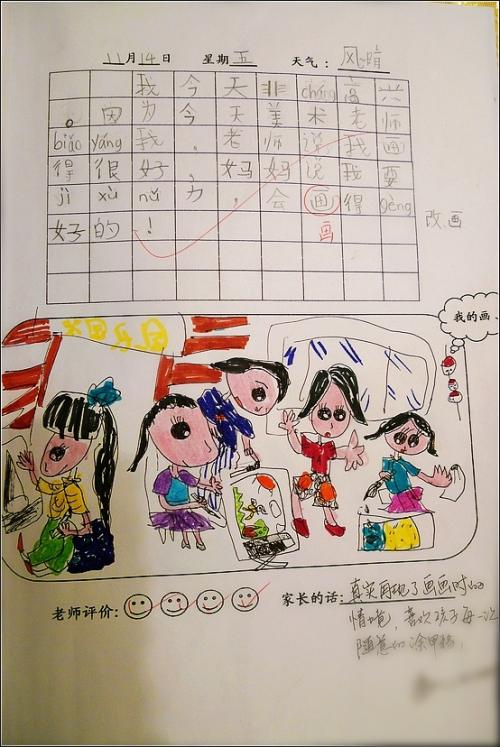 11月14日 星期五 天气:风晴
我今天非cháng高兴
。因为今天美术老师
biǎo yáng我,老师说我画
得很好,妈妈说我要
jì xù nǔ力,会画得gèng
好的!
画
改画
我的画
老师评价: 家长的话:真实再现了画画时的
喜欢孩子每一次
随意的涂